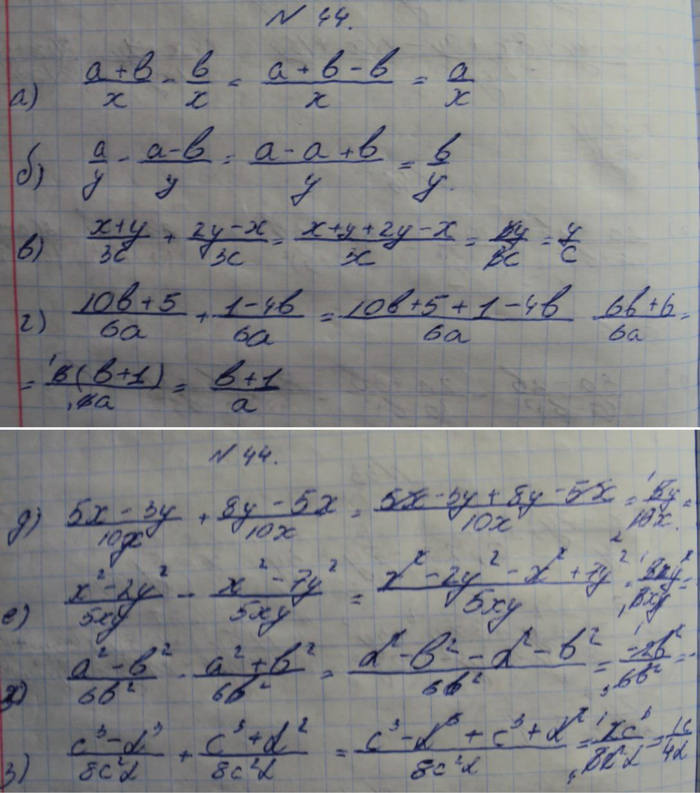 N 44.
а) (a+b)/x - b/x = (a+b-b)/x = a/x
б) a/y - (a-b)/y = (a-a+b)/y = b/y.
в) (x+y)/3c + (2y-x)/3c = (x+y+2y-x)/3c = 3y/3c = y/c
г) (10b+5)/6a + (1-4b)/6a = (10b+5+1-4b)/6a (6b+6)/6a =
= 6(b+1)/6a = (b+1)/a
N 44.
д) (5x-3y)/10x + (8y-5x)/10x = (5x-3y+8y-5x)/10x = 5y/10x. =
е) (x²-2y²)/5xy - (x²-7y²)/5xy = (x²-2y²-x²+7y²)/5xy = 5y²/5xy =
ж) (a²-b²)/6b² - (a²+b²)/6b² = (a²-b²-a²-b²)/6b² = -2b²/6b² =
з) (c³-d³)/8c²d + (c³+d²)/8c²d = (c³-d³+c³+d²)/8c²d = 2c³/8c²d = 1c/4d